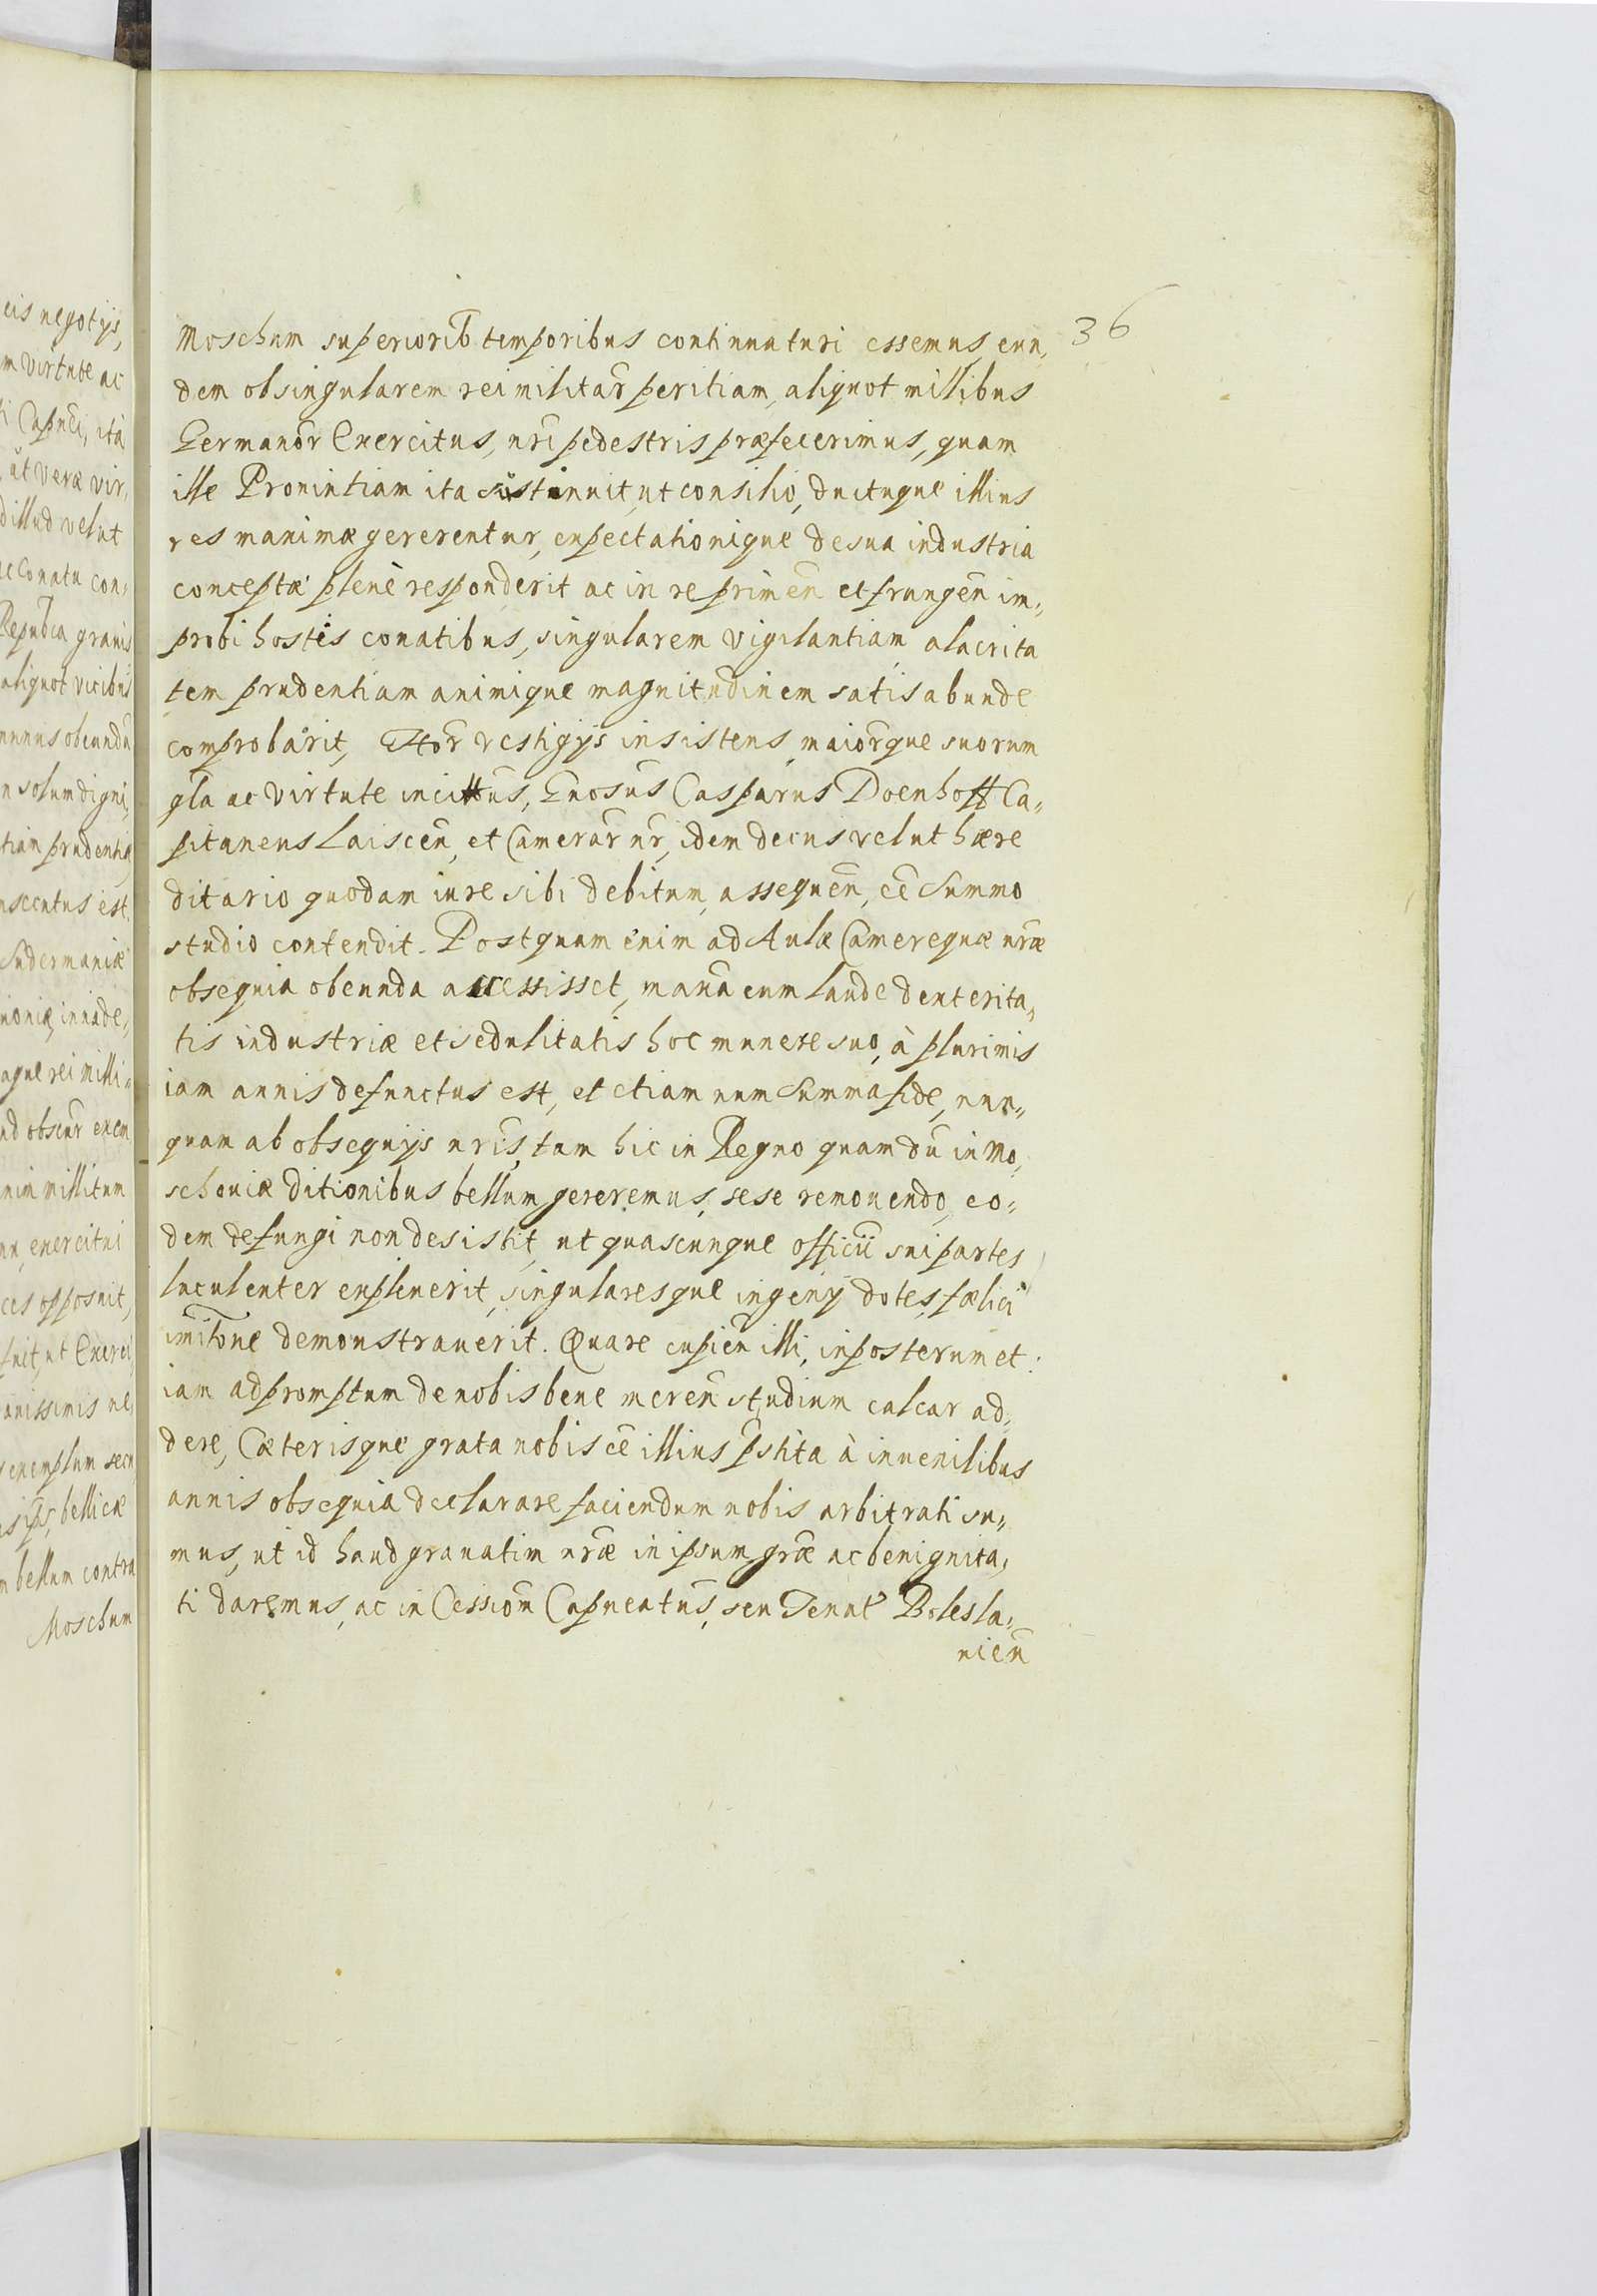 eis negotijs,
m virtute ac
i Capnei, ita
ut veræ vir,
dillud velut
ac Conatu con,
Repubca grauis
aliquot vicibus
munus obeundū
n solum digni,
tiam prudentia
nsecutus est.
Sudermaniæ
moniæ, inuade,
aque rei milli,
ud obscur exem
nim millitum
exercitui
ces opposuit,
fuit, ut Exerci
auissimis ne,
exemplum secu
bellicæ
m bellum contra
Moschum
36
Moschum superiorib temporibus continuaturi essemus, eun,
dem ob singularem rei militar̃ peritiam, aliquot millibus
Germanor̃ Exercitus, nr̃i pedestris præfecerimus, quam
ille Prouintiam ita sustinuit, ut consilio, ductuque illius
res maximæ gererentur, expectationique de sua industria
conceptæ plenè responderit ac in reprimeñ et frangeñ im,
probi hostis conatibus, singularem vigilantiam, alacrita
tem prudentiam animique magnitudinem satis abunde
comprobarit, Hor̃ vestigijs insistens, maiorq̃ue suorum
gl̃a ac virtute incittus, Gnosus Casparus Doenhoff Ca,
pitaneus Laisceñ, et Camerar̃ nr̃, idem decus velut hære
ditario quodam iure sibi debitum, assequeñ, cẽ Summo
studio contendit. Postquam enim ad Aulæ Camereque nr̃æ
obsequia obeunda accessisset, maxã cum laude dexterita,
tis industriæ et sedulitatis hoc munere suo, à plurimis
iam annis defunctus est, et etiam num Summa fide, nun,
quam ab obsequijs nr̃is, tam hic in Regno quam dũ in Mo,
schouiæ ditionibus bellum gereremus, sese remouendo, eo,
dem defungi non desistit, ut quascunque officii sui partes
luculenter explenerit, singularesque ingenij dotes, fælici
imitõne demonstrauerit. Quare cupieñ illi, in posterum et:
iam ad promptum de nobis bene mereñ studium calcar ad,
dere, Cæterisque grata nobis cẽ illius p̃stita à iuuenilibus
annis obsequia declarare faciendum nobis arbitrati su,
mus, ut id haud grauatim nr̃æ in ipsum gr̃æ ac benignita,
ti daremus, ac in Cession̄ Capneatus, seu Tenut Bolesla,
uieñ